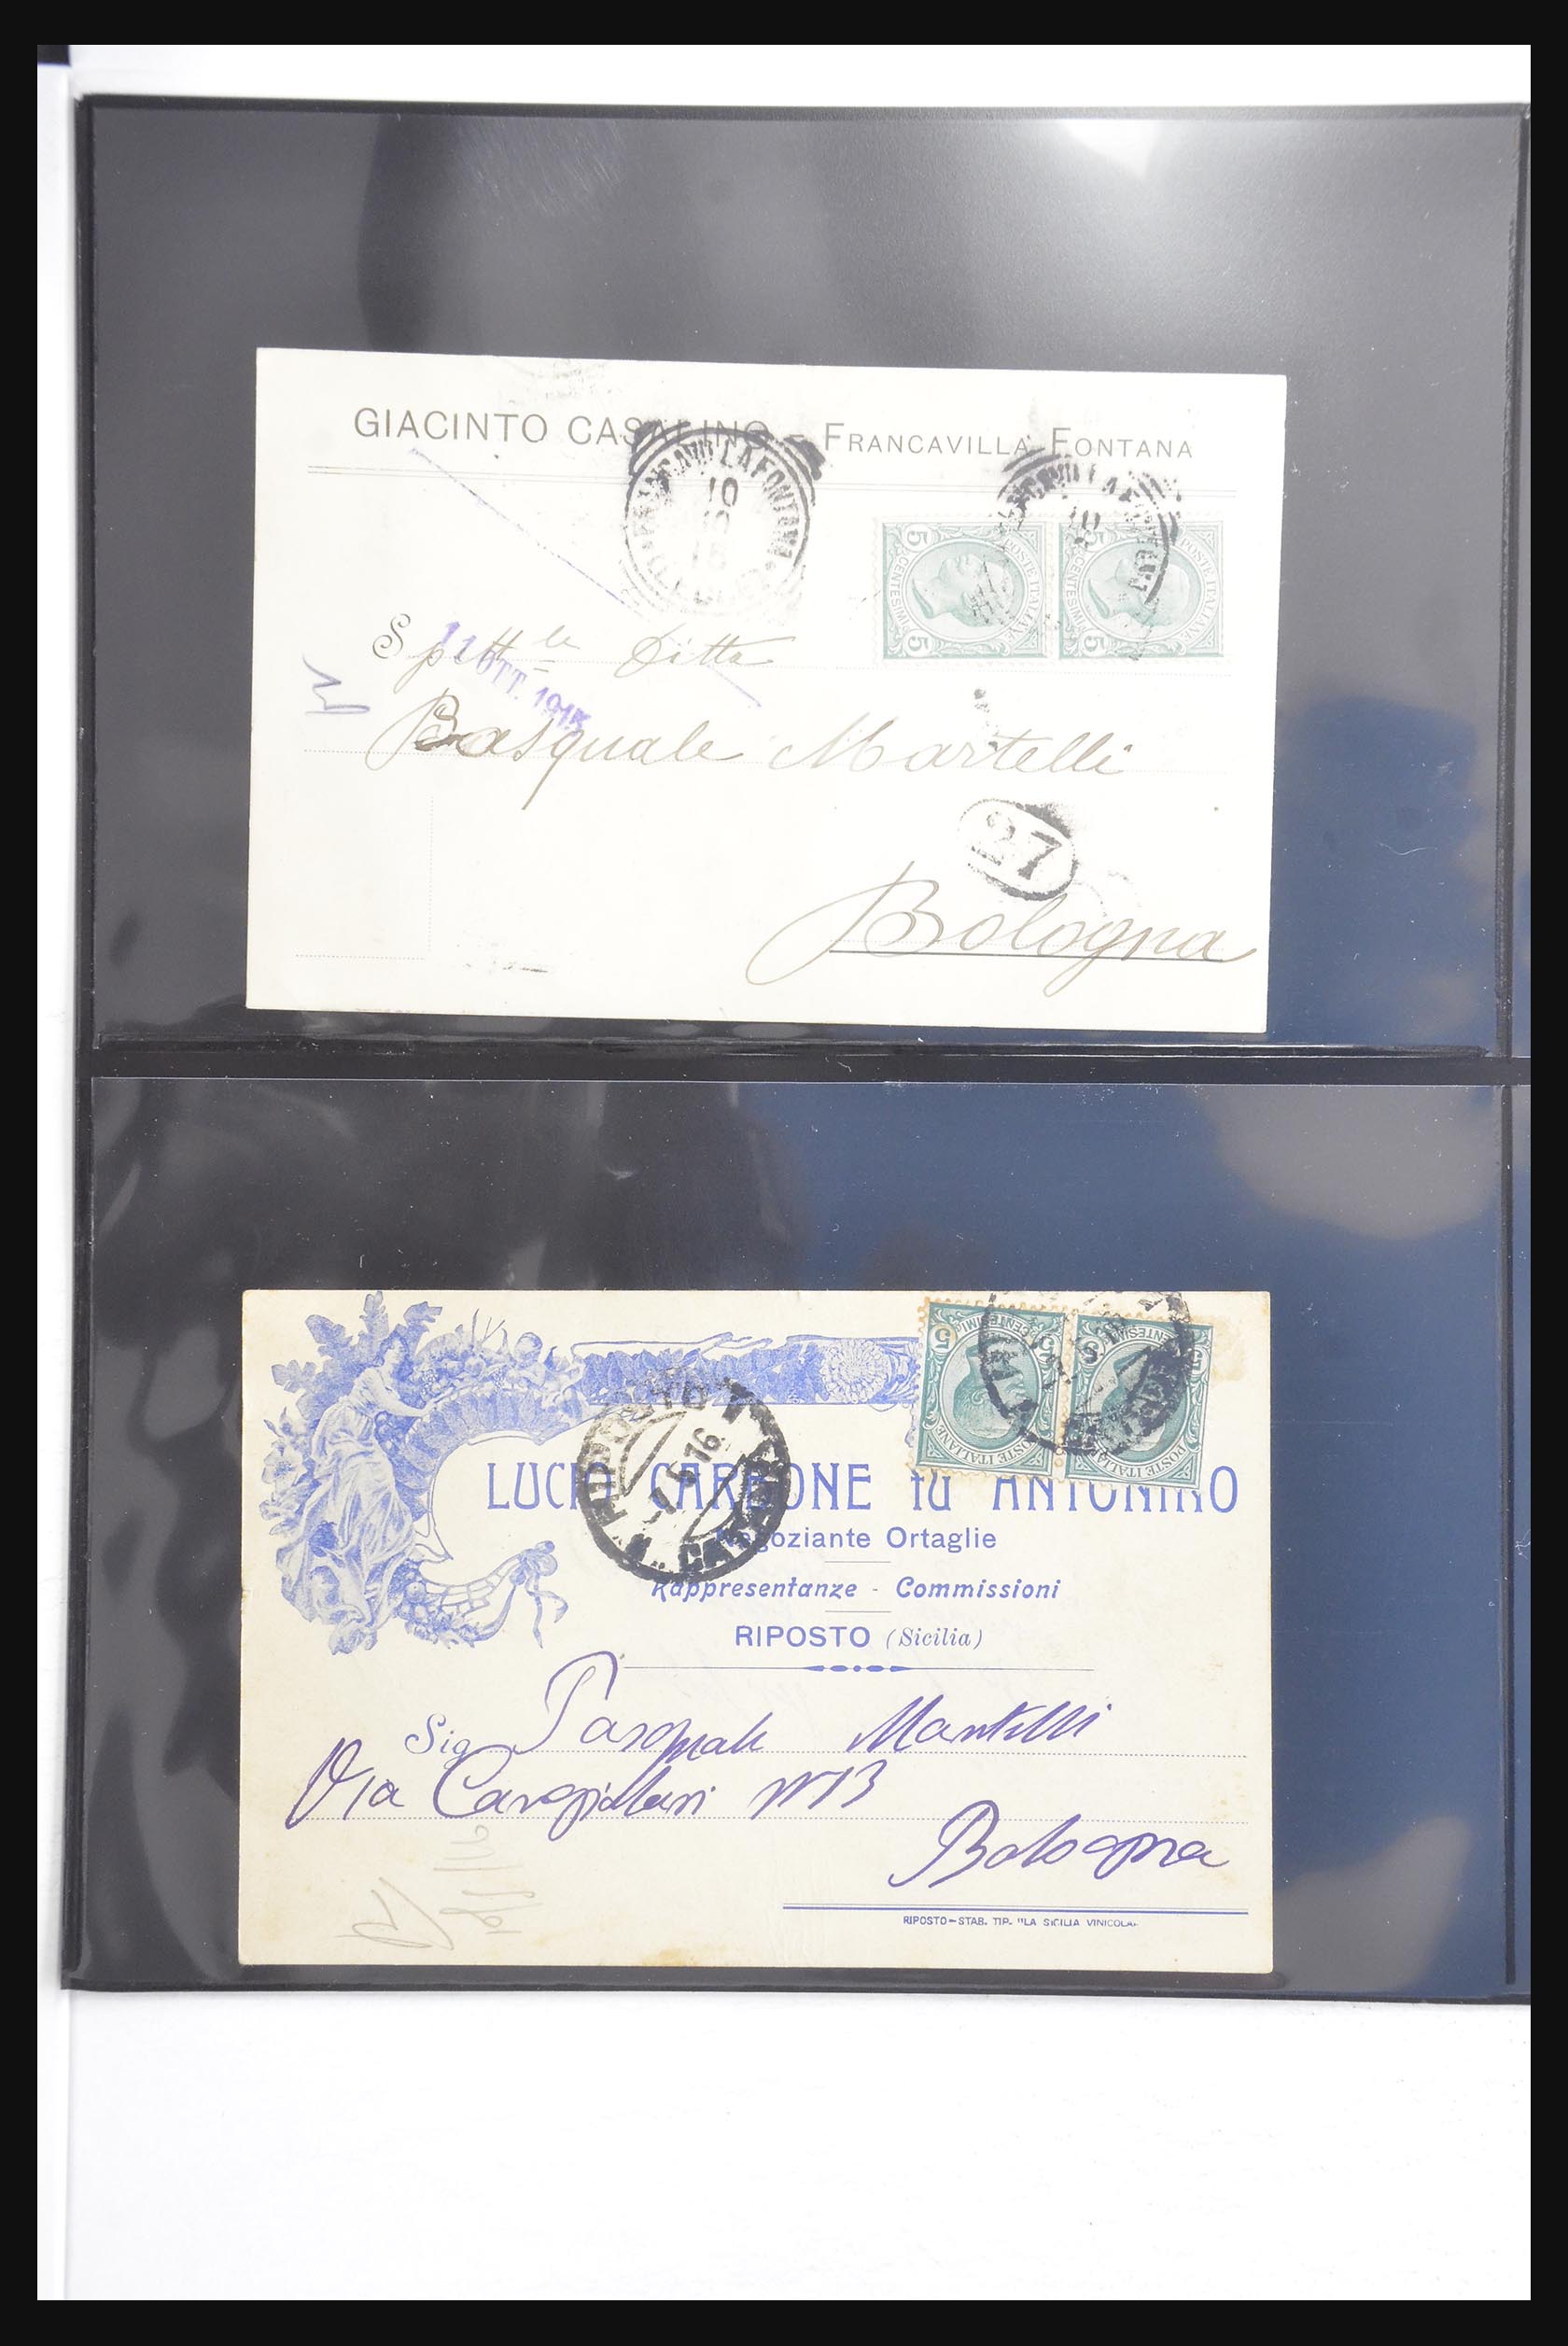 GIACINTO CASALINO - FRANCAVILLA FONTANA
FRANCAVILLA FONTANA
10
10
15
POSTE ITALIANE
CENTESIMI
5
5
POSTE ITALIANE
CENTESIMI
5
5
Spett.le Ditta
11 OTT. 1915
Pasquale Martelli
27
Bologna
CENTESIMI
5
POSTE ITALIANE
CENTESIMI
5
POSTE ITALIANE
RIPOSTO
1.6.16
LUCIO CARBONE fu ANTONINO
Negoziante Ortaglie
Rappresentanze - Commissioni
RIPOSTO (Sicilia)
Sig Pasquale Martelli
Via N 13
Bologna
RIPOSTO-STAB. TIP. "LA SICILIA VINICOLA"